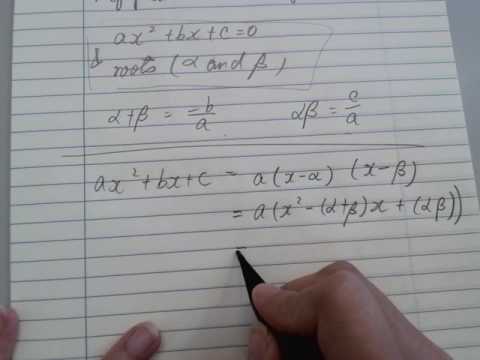 ax² + bx + c = 0
roots (α and β)
α+β = -b/a αβ = c/a
ax² + bx + c = a(x-α) (x-β)
= a(x² - (α+β)x + (αβ))
=